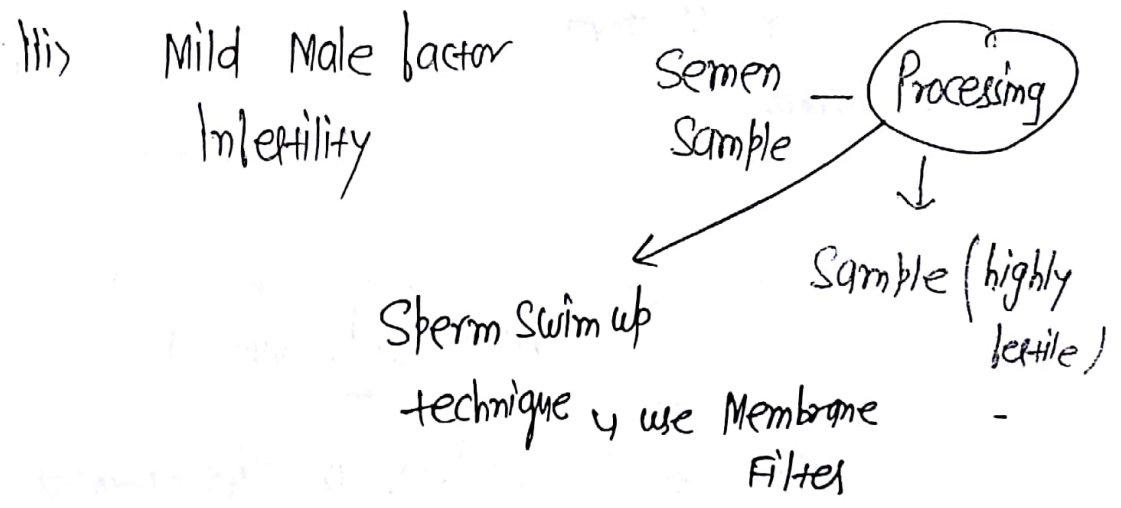 iii> Mild Male factor
Infertility
Semen – Processing
Sample
Sample (highly
fertile)
Sperm swim up
technique y use Membrane -
Filter